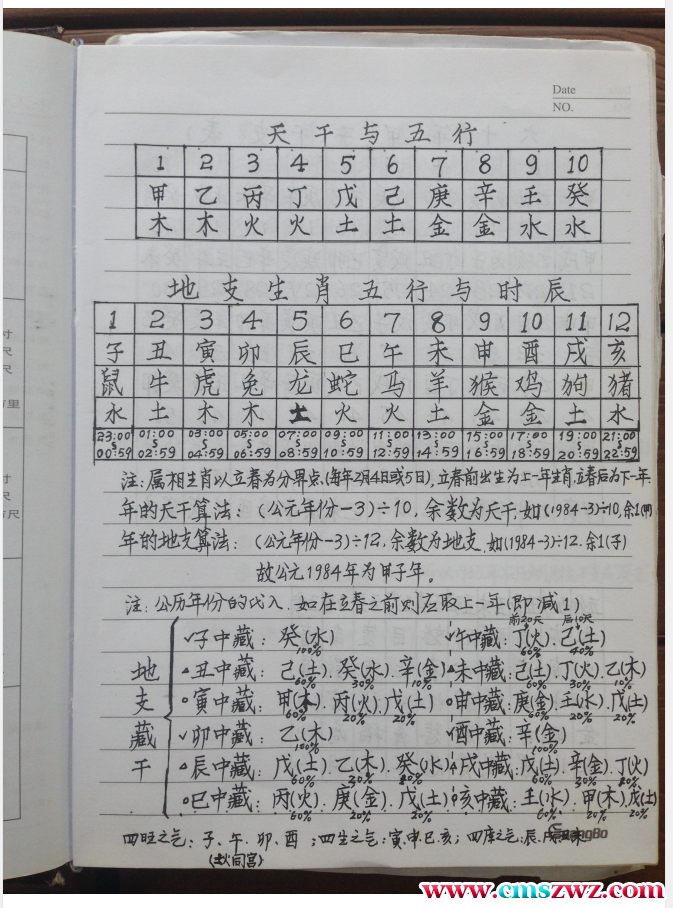 Date
NO.
天干与五行
1 2 3 4 5 6 7 8 9 10
甲 乙 丙 丁 戊 己 庚 辛 壬 癸
木 木 火 火 土 土 金 金 水 水
地支生肖五行与时辰
1 2 3 4 5 6 7 8 9 10 11 12
子 丑 寅 卯 辰 巳 午 未 申 酉 戌 亥
鼠 牛 虎 兔 龙 蛇 马 羊 猴 鸡 狗 猪
水 土 木 木 土 火 火 土 金 金 土 水
23:00 01:00 03:00 05:00 07:00 09:00 11:00 13:00 15:00 17:00 19:00 21:00
00:59 02:59 04:59 06:59 08:59 10:59 12:59 14:59 16:59 18:59 20:59 22:59
注:属相生肖以立春为分界点(每年2月4日或5日),立春前出生为上一年生肖,立春后为下一年.
年的天干算法:(公元年份-3)÷10,余数为天干,如(1984-3)÷10,余1(甲)
年的地支算法:(公元年份-3)÷12,余数为地支,如(1984-3)÷12.余1(子)
故公元1984年为甲子年。
注:公历年份的代入.如在立春之前则应取上一年(即减1)
前20天 后10天
地支藏干
子中藏:癸(水) 午中藏:丁(火).己(土)
100% 60% 40%
丑中藏:己(土).癸(水).辛(金) 未中藏:己(土).丁(火).乙(木)
60% 30% 10% 60% 30% 10%
寅中藏:甲(木).丙(火).戊(土) 申中藏:庚(金).壬(水).戊(土)
60% 20% 20% 60% 20% 20%
卯中藏:乙(木) 酉中藏:辛(金)
100% 100%
辰中藏:戊(土).乙(木).癸(水) 戌中藏:戊(土).辛(金).丁(火)
60% 60%
巳中藏:丙(火).庚(金).戊(土) 亥中藏:壬(水).甲(木).戊(土)
60% 20% 20% 60% 20% 20%
四旺之气:子、午.卯、酉;四生之气:寅.申.巳.亥;四库之气:辰.戌
同宫)
www.cmszwz.com